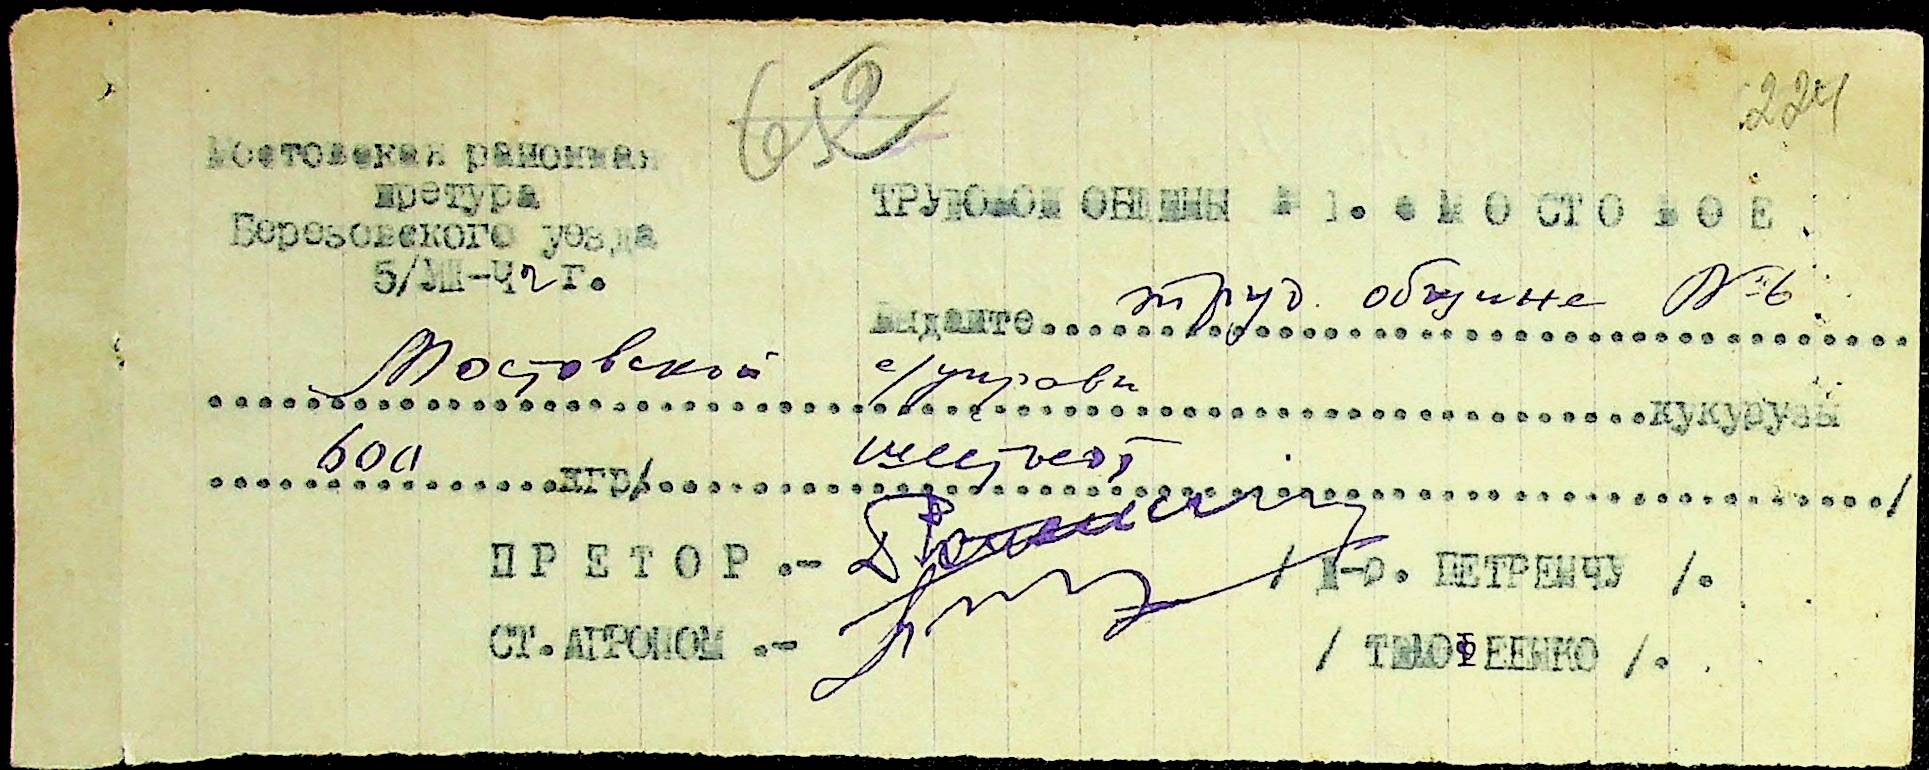 62
224
Мостовская районная
претура
Березовского уезда
5/VIII-42 г.
ТРУДОВОЙ ОБЩИНЫ № 1. с М О С Т О В О Е
Выдайте труд. общине № 6
Мостовской с/управи кукурузы
600 кгр/ шестьсот /
П Р Е Т О Р .-
/ П-р. ПЕТРЕНЧУ /.
СТ. АГРОНОМ .-
/ ТИМОФЕЕНКО /.